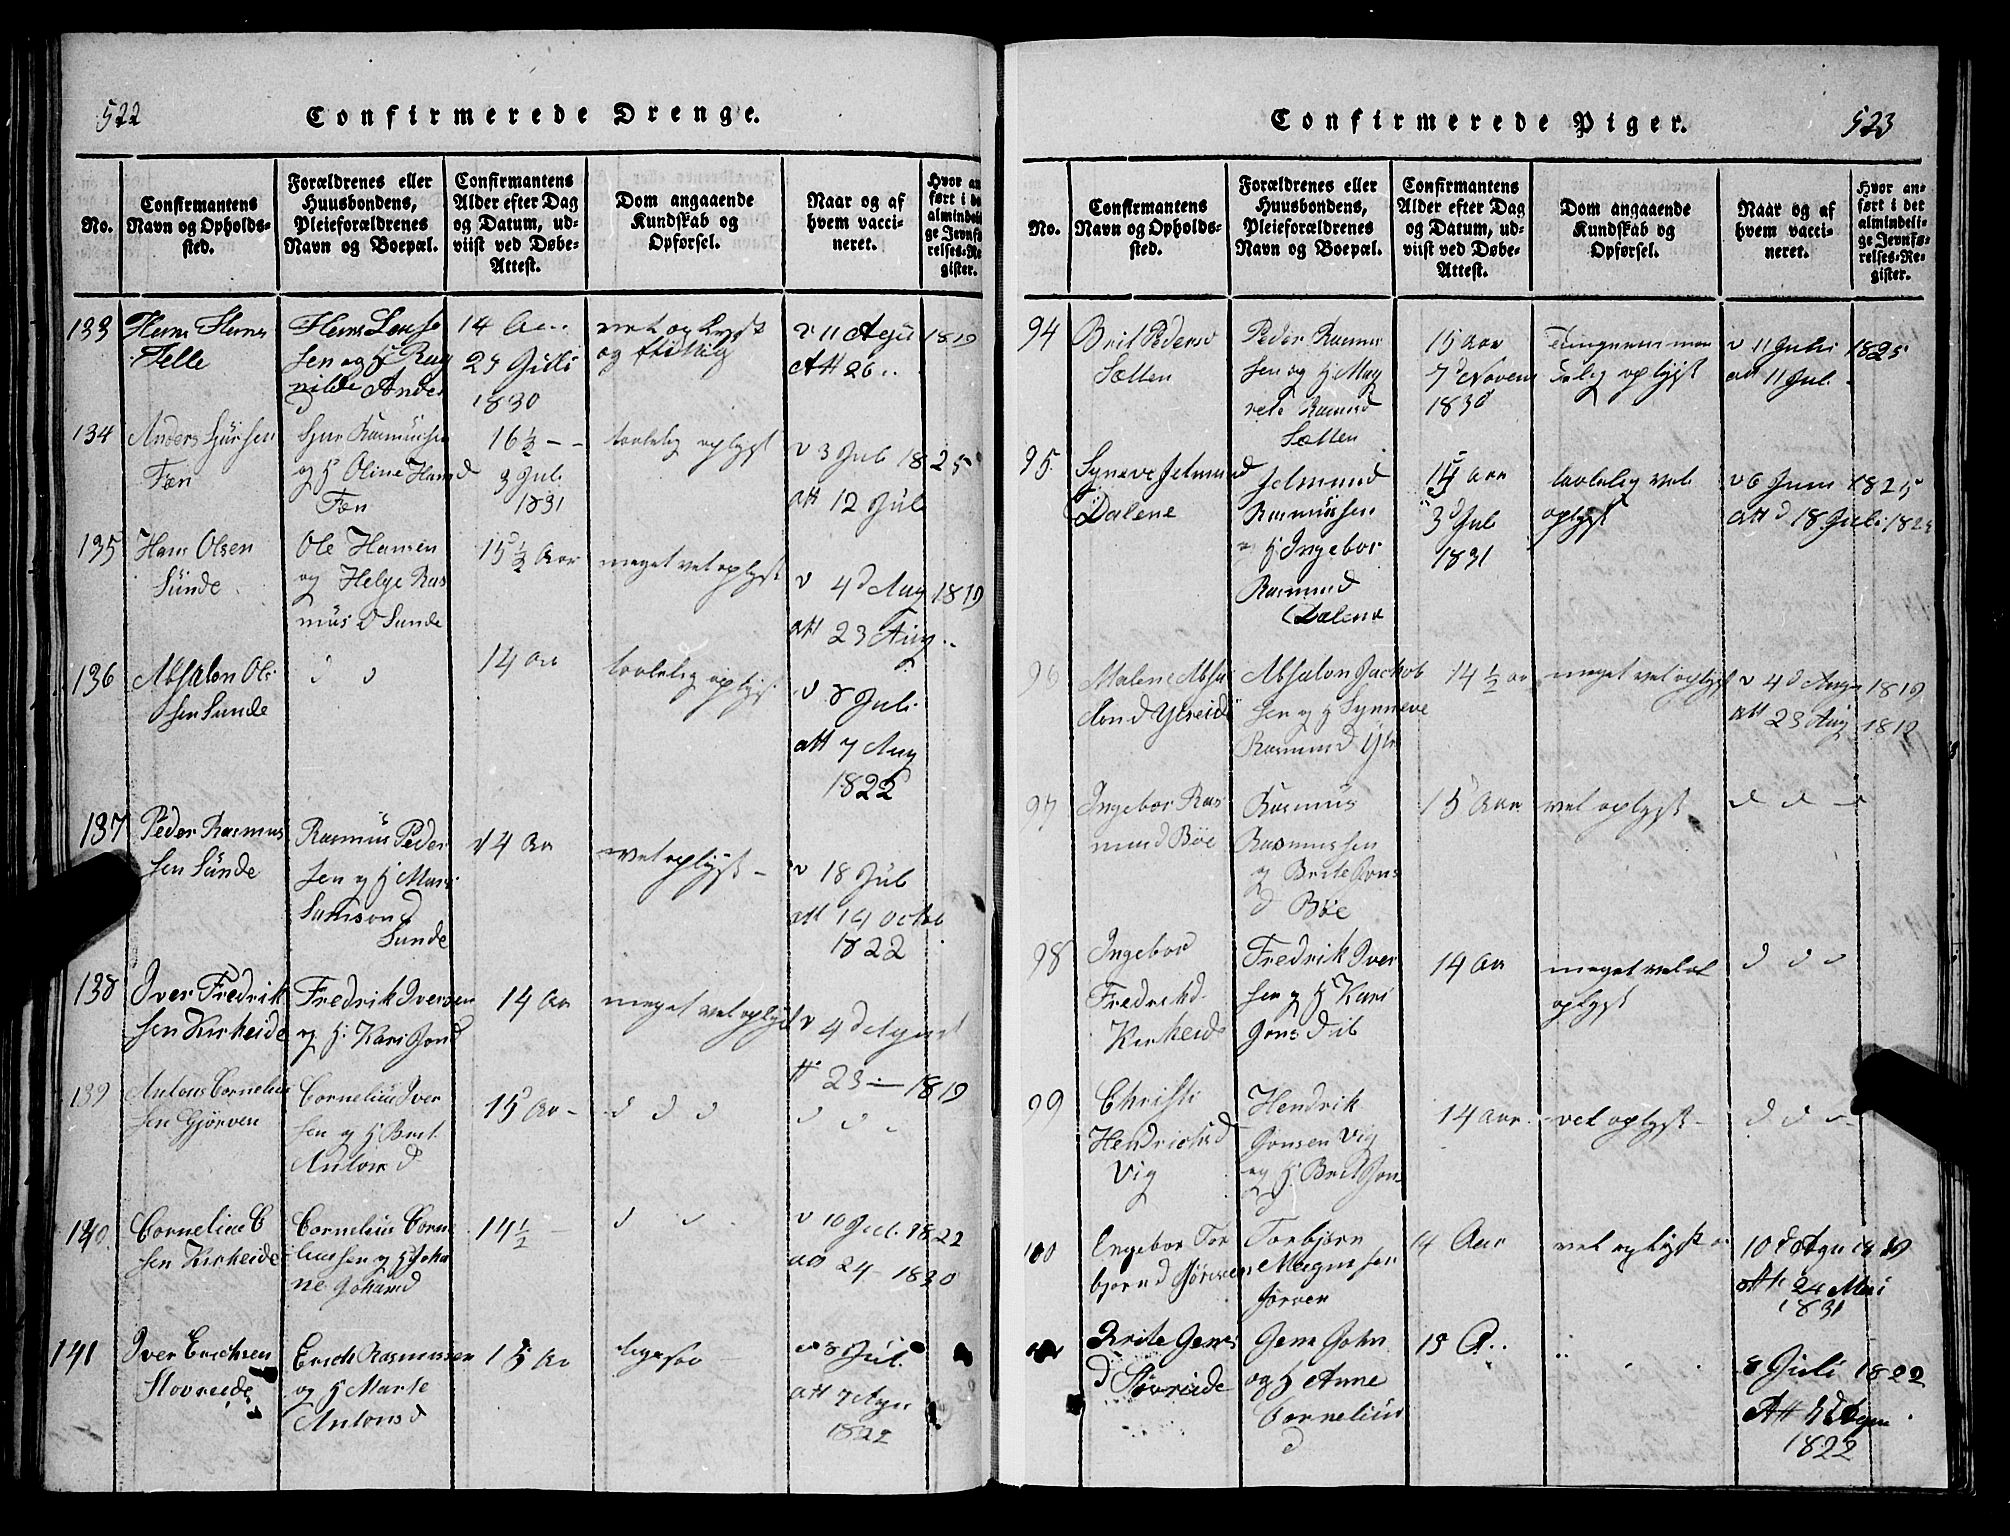 522
Confirmerede Drenge.
No.
Confirmantens
Navn og Opholds-
sted.
Forældrenes eller
Huusbondens,
Pleieforældrenes
Navn og Boepæl.
Confirmantens
Alder efter Dag
og Datum, ud-
viist ved Døbe-
Attest.
Dom angaaende
Kundskab og
Opførsel.
Naar og af
hvem vacci-
neret.
Hvor an
ført i de
almindeli
ge Jevnfø
relses-Re
gister.
133
Helle
sen og H Rag
nilde Ander
d
14 Aa..
25 Julii
1830
og flittig
v 11 Agu 1819
Att 26..
134
Anders Sjursen
Fæn
Sjur Rasmussen
og H Oline Hansd
Fæn
16 1/2 - -
3 Jul.
1831
taalelig oplyst
v 3 Jul 1825
att 12 Jul
135
Hans Olsen
Sunde
Ole Hansen
og Helge Ras
mus D Sunde
15 1/2 Aar
meget vel oplyst
v 4 d Aug 1819
att 23 Aug..
136
Absalon Ol
sen Sunde
d d
14 Aar
taalelig oplyst
v 8 Juli
att 7 Aug
1822
137
Peder Rasmus
sen Sunde
Rasmus Peder
sen og H Mari
Samson d
Sunde
14 Aar
vel oplyst -
v 18 Jul
att 14 Octbr
1822
138
Iver Fredrik
sen Kirkeide
Fredrik Iversen
og H. Kari Jon d
14 Aar
meget vel oplyst
v 4 d August
tt 23 - 1819
139
Antons Cornelius
sen Gjørven
Cornelius Iver
sen og H Brit
Antons d
15 Aar -
d d d
d d d
140.
Cornelius C
sen Kirkeide
Cornelius Corne
liussen og H Joha
ne Johand
14 1/2 -
d d
v 10 Jul. 1822
att 24 - 1830
141
Iver Erichsen
Hovreide
Erich Rasmussen
og H Marte
Antons d
15 Aar
ligesaa
v 8 Jul.
att 7 Agu
1822
Confirmerede Piger.
523
No.
Confirmantens
Navn og Opholds-
sted.
Forældrenes eller
Huusbondens,
Pleieforældrenes
Navn og Boepæl.
Confirmantens
Alder efter Dag
og Datum, ud-
viist ved Døbe-
Attest.
Dom angaaende
Kundskab og
Opførsel.
Naar og af
hvem vacci-
neret.
Hvor an-
ført i det
almindeli-
ge Jevnfø-
relses-Re-
gister.
94
Brit Pedersd
Sætten
Peder Rasmus
sen og H Mag
rete Rasmusd
Sætten
15 Aar
7 d Novem
1830
oplyst
v 11 Juli 1825
att 11 Jul. -
95.
Syneve Jetmund
d
Dalene
Jetmund
Rasmussen
og H Ingebor
Rasmusd
Dalene
Aar
3 d Jul
1831
taalelig vel
oplyst
v 6 Juni 1825
att d 18 Juli: 1825
96
Malene Absa
lon d Ytreide
Absalon Jackob
sen og H Synneve
Rasmus d Ytr
14 1/2 aar
meget vel oplyst
v 4 d Aug 1819
att 23 Aug 1819
97
Ingebor Ras
mus d Bøe
Rasmus
Rasmussen
og Brite Jons
d Bøe
15 Aar
vel oplyst
d d d
98
Ingebor
Fredrikd.
Kirkeide
Fredrik Iver
sen og H Kari
Jons d ib
14 Aar
meget vel
oplyst
d d d
99
Christi
Hendrichsd
Vig
Hendrik
Jonsen Vig
og H. Brit Jons
d
14 Aar.
vel oplyst -
d d d -
100
Engebor Tor
bjørn d Jørven
Torbjørn
Magnussen
Jørven
14 Aar
vel oplyst
10 d Agu 1819
Att 24 Mai
1831
101
Brite Jens
d Hovreide
Jens John
og H Anne
Cornelius
d
15 A..
8 Juli 1822
Att Agu
1822